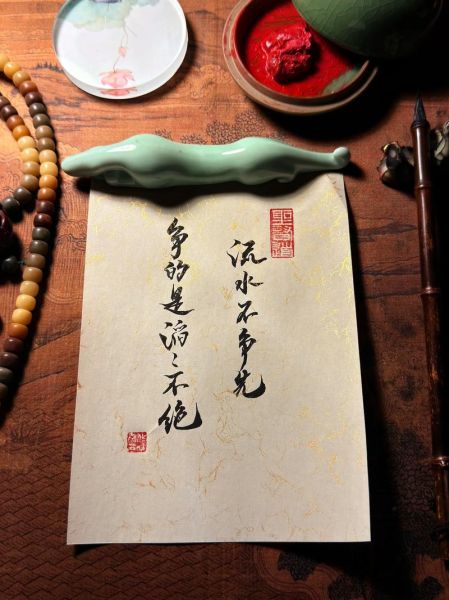 流水不争先
争的是滔〻不绝